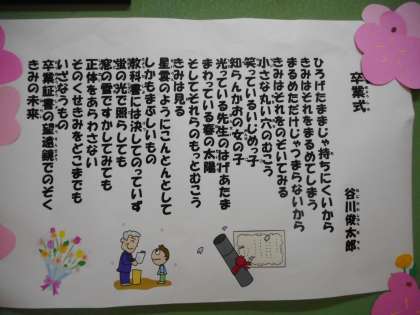 卒業式
谷川俊太郎
ひろげたままじゃ持ちにくいから
きみはそれをまるめてしまう
まるめただけじゃつまらないから
きみはそれをのぞいてみる
小さな丸い穴のむこう
笑っているいじめっ子
知らんかおの女の子
光っている先生のはげあたま
まわっている春の太陽
そしてそれらのもっとむこう
きみは見る
星雲のようにこんとんとして
しかもまぶしいもの
教科書には決してのっていず
蛍の光で照らしても
窓の雪ですかしてみても
正体をあらわさない
そのくせきみをどこまでも
いざなうもの
卒業証書の望遠鏡でのぞく
きみの未来